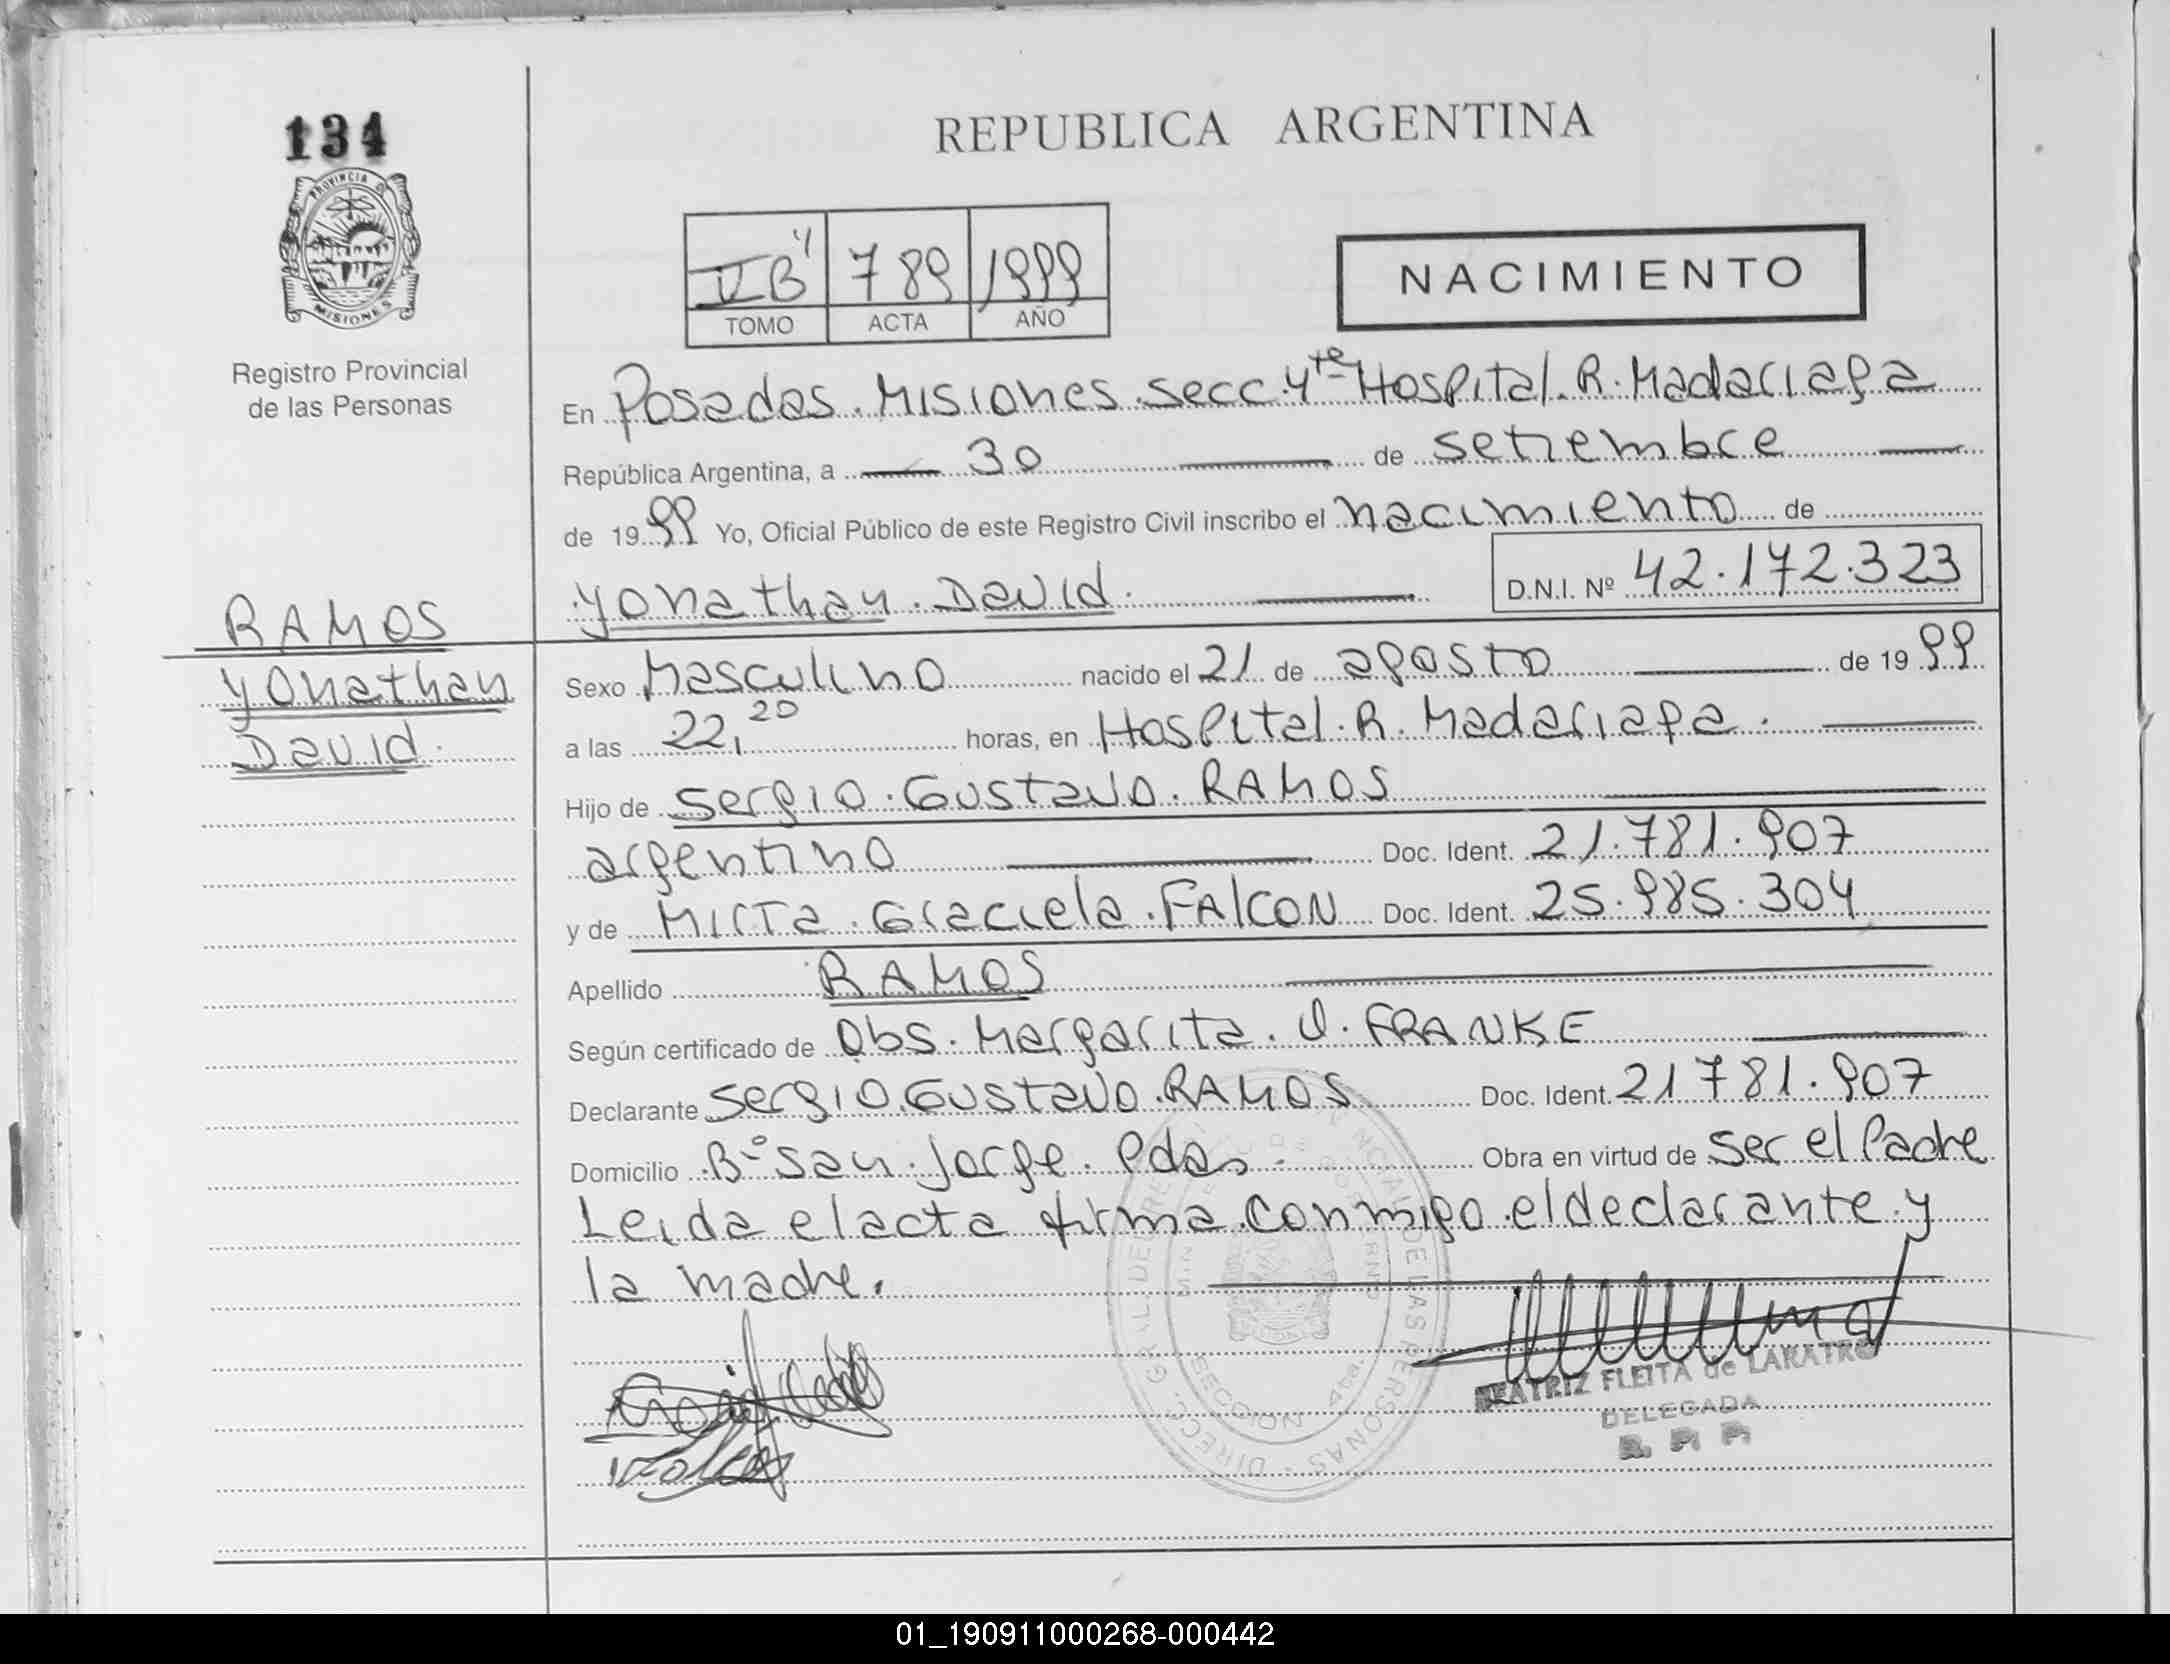 134
PROVINCIA D
MISIONES
Registro Provincial
de las Personas
REPUBLICA ARGENTINA
789 1999
TOMO ACTA AÑO
NACIMIENTO
En Posadas. Misiones. secc. 4ta Hospital. R. Madariaga
República Argentina, a 30 de setiembre
de 1999 Yo, Oficial Público de este Registro Civil inscribo el nacimiento de
Yonathan. David. D.N.I. Nº 42.172.323
RAMOS
Yonathan
David.
Sexo Masculino nacido el 21 de agosto de 1999
a las 22,20 horas, en Hospital. R. Madariaga.
Hijo de Sergio. Gustavo. RAMOS
argentino Doc. Ident. 21.781.907
y de Mirta. Graciela. FALCON Doc. Ident. 25.985.304
Apellido RAMOS
Según certificado de Obs. Margarita. FRANKE
Declarante Sergio. Gustavo. RAMOS Doc. Ident. 21781.907
Domicilio Bº San. Jorge. Pdas. Obra en virtud de ser el Padre
Leida el acta firma conmigo el declarante y
la madre.
DIRECC. GRAL. DE LAS PERSONAS
SECCION 4ta.
BEATRIZ FLEITA de LARATRO
DELEGADA
R. P. P.
01_190911000268-000442